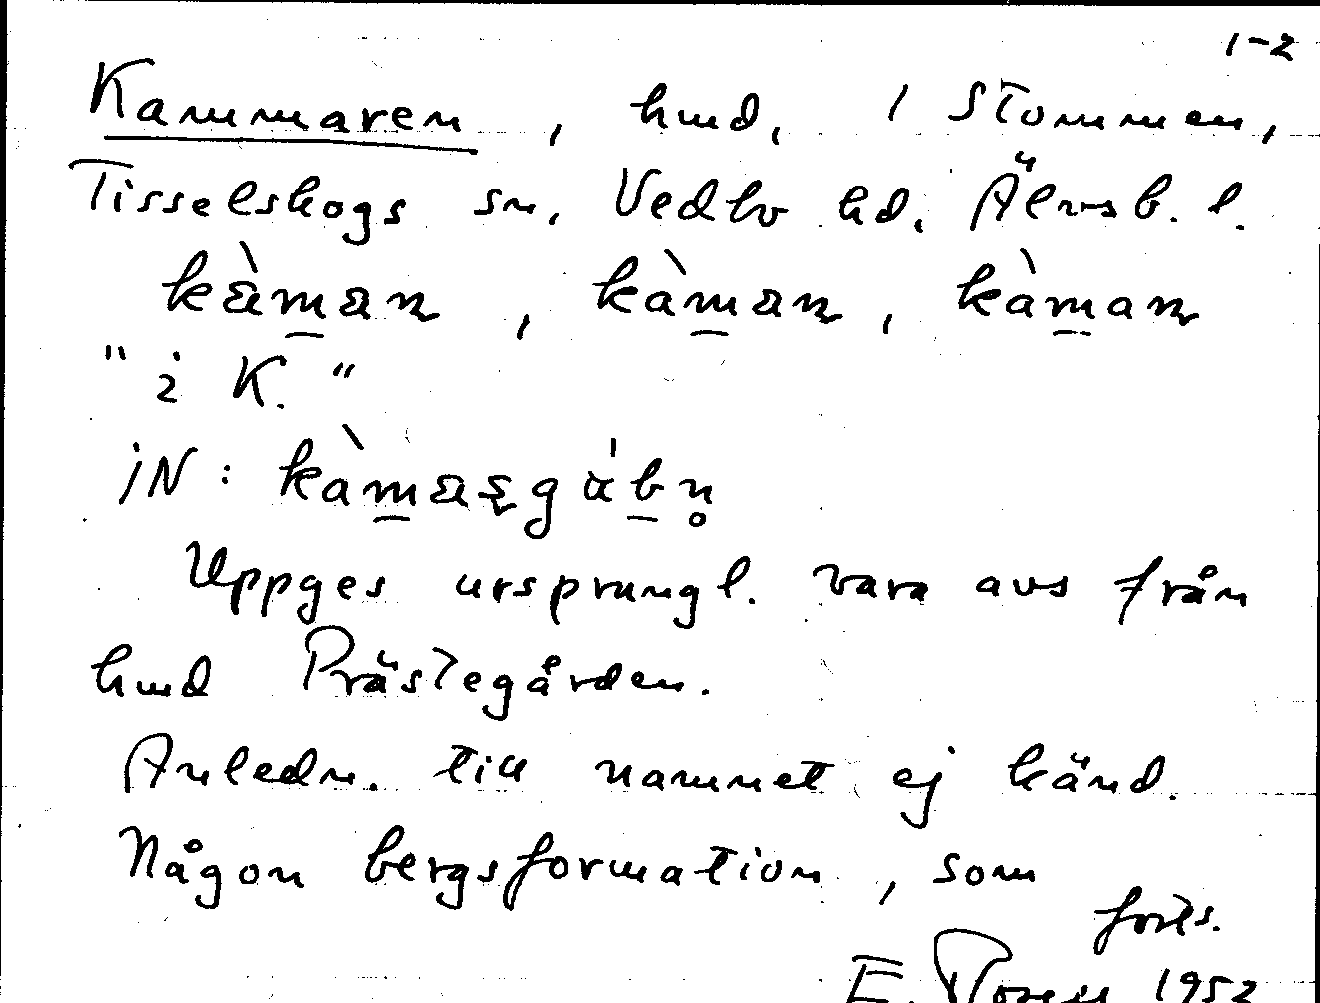 1-2
Kammaren, hmd, i Stommen,
Tisselskogs sn, Vedbo hd, Älvsb. l.
kàman, kàman, kàman
"i K."
iN:
Uppges ursprungl. vara avs från
hmd Prästegården.
Anledn. till namnet ej känd.
Någon bergsformation, som
forts.
E. 1952